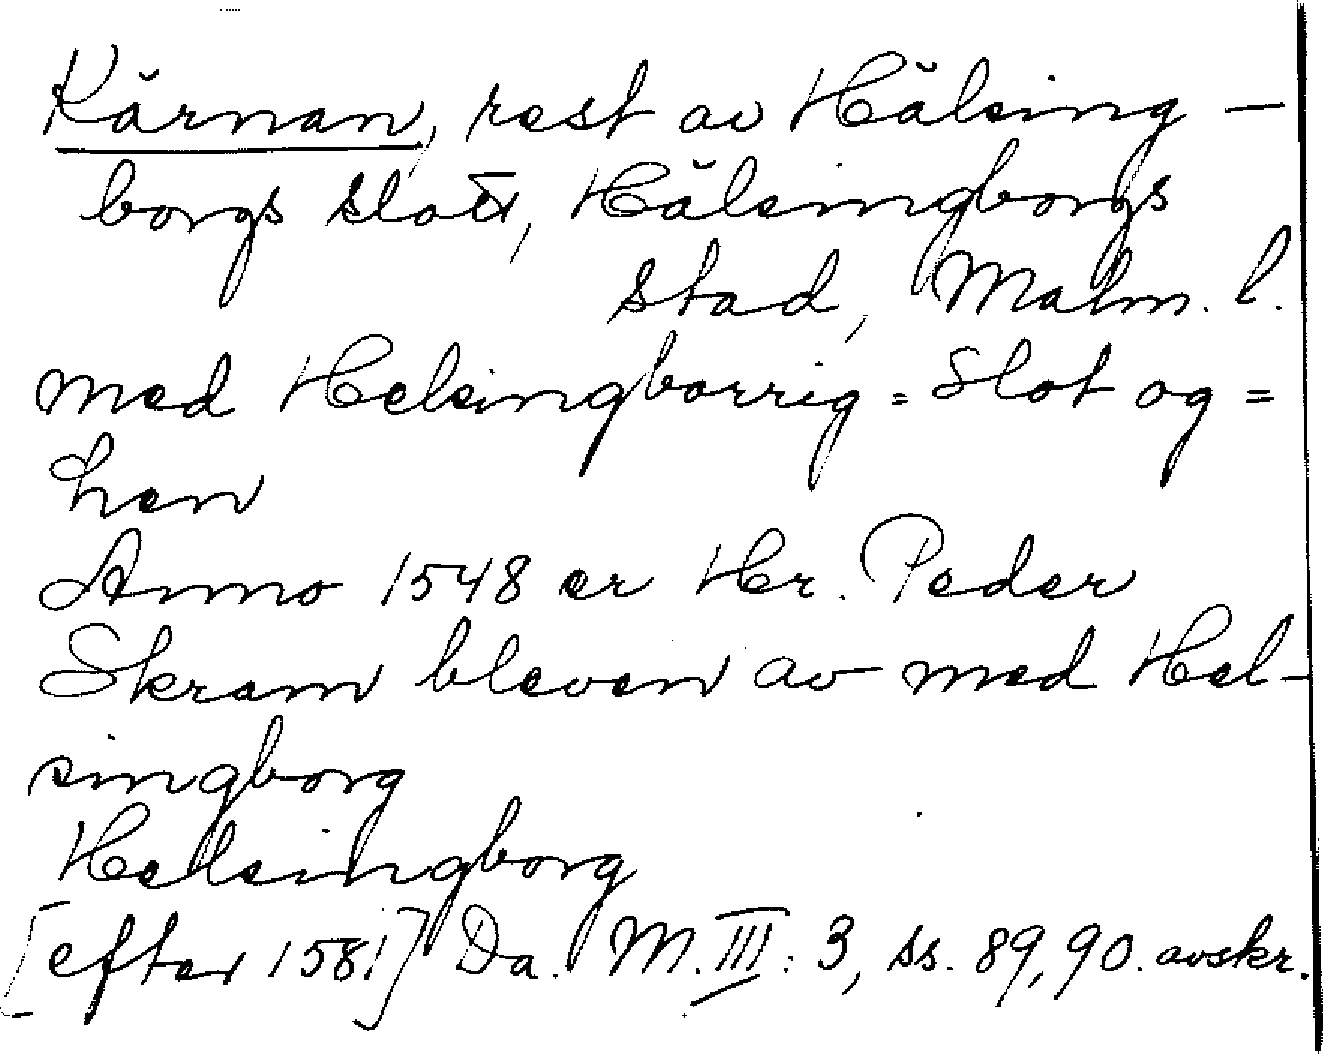 Kärnan, rest av Hälsing-
borgs slott, Hälsingborgs
stad, Malm. l.
med Helsingborrig = Slot og =
hen
Anno 1548 er Hr. Peder
Skram bleven av med Hel-
singborg
Helsingborg
[efter 1581] Da. M. III: 3, ss. 89, 90. avskr.